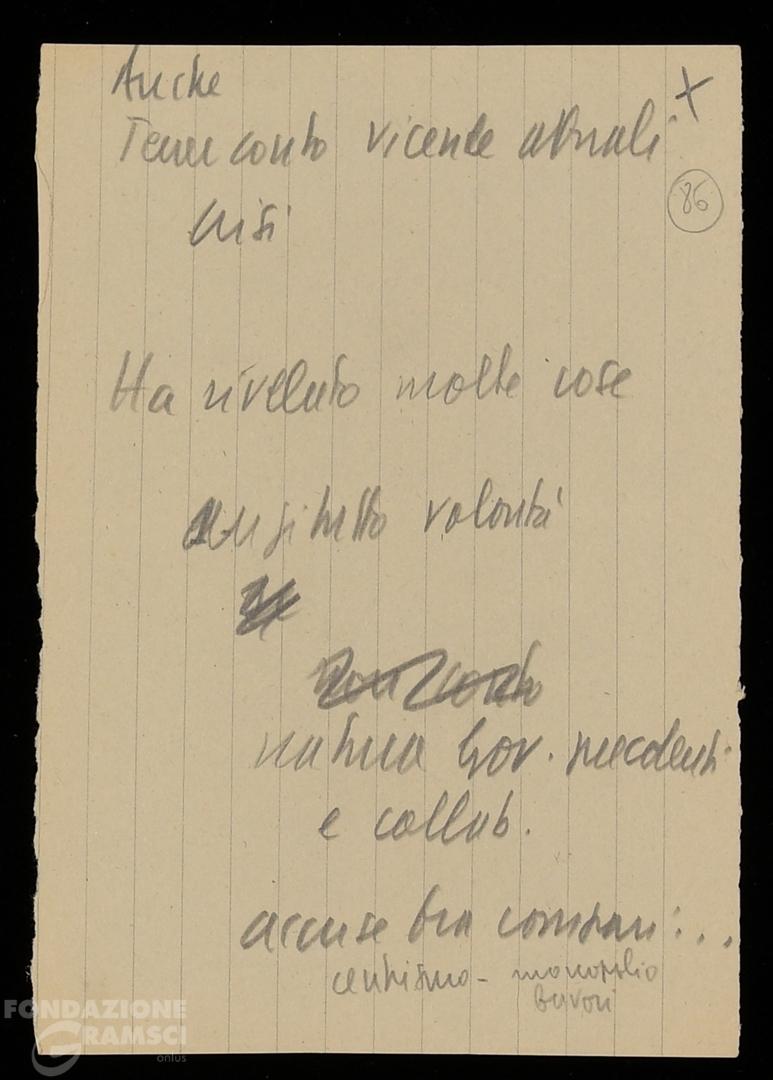 Anche
Tener conto vicende attuali
X
86
crisi
Ha rivelato molte cose
anzitutto volontà
natura Gov. precedenti
e collab.
accuse tra compari: ...
centrismo - monopolio
FONDAZIONE
GRAMSCI
onlus